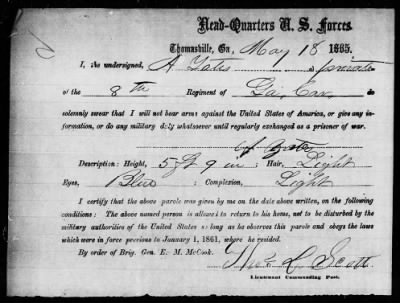 Head-Quarters U. S. Forces
Thomasville, Ga, May 18 1865.
I, the undersigned, A Yates a private
of the 8th Regiment of Ga, Cav,
solemnly swear that I will not bear arms against the United States of America, or give any in-
formation, or do any military duty whatsoever until regularly exchanged as a prisoner of war.
Yates
Description: Height, 5 ft 9 in; Hair, Light
Eyes, Blue; Complexion, Light
I certify that the above parole was given by me on the date above written, on the following
conditions: The above named person is allowed to return to his home, not to be disturbed by the
military authorities of the United States so long as he observes this parole and obeys the laws
which were in force previous to January 1, 1861, where he resided.
By order of Brig. Gen. E. M. McCook.
L. Scott
Lieutenant Commanding Post.